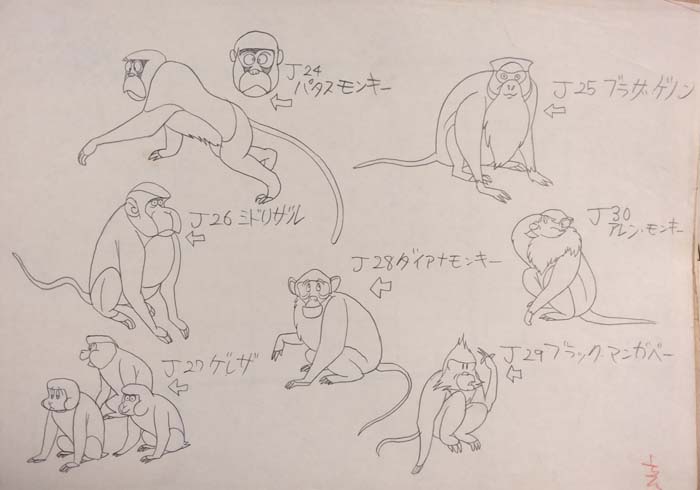 J24
パタスモンキー
J25 ブラザ・ゲノン
J26 ミドリザル
J30
アレン・モンキー
J28 ダイアナモンキー
J27 ゲレザ
J29 ブラック・マンガベー